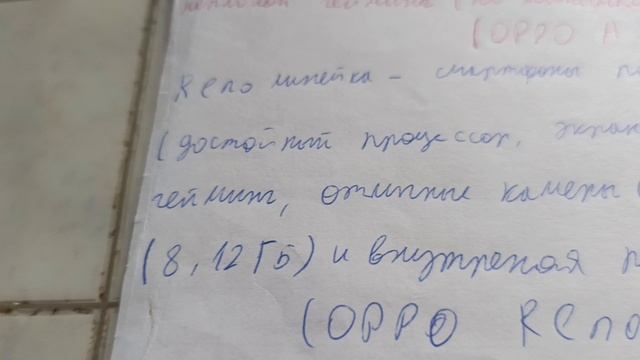 неплохой гейминг (по
(OPPO A
Reno линейка - смартфоны
(достойный процессор, экран
гейминг, отличные камеры
(8, 12 ГБ) и внутреняя п
(OPPO Reno